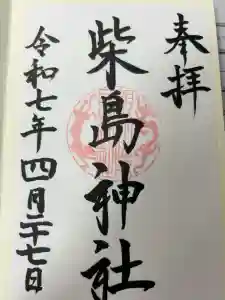 奉拝
柴島神社
令和七年四月二十七日